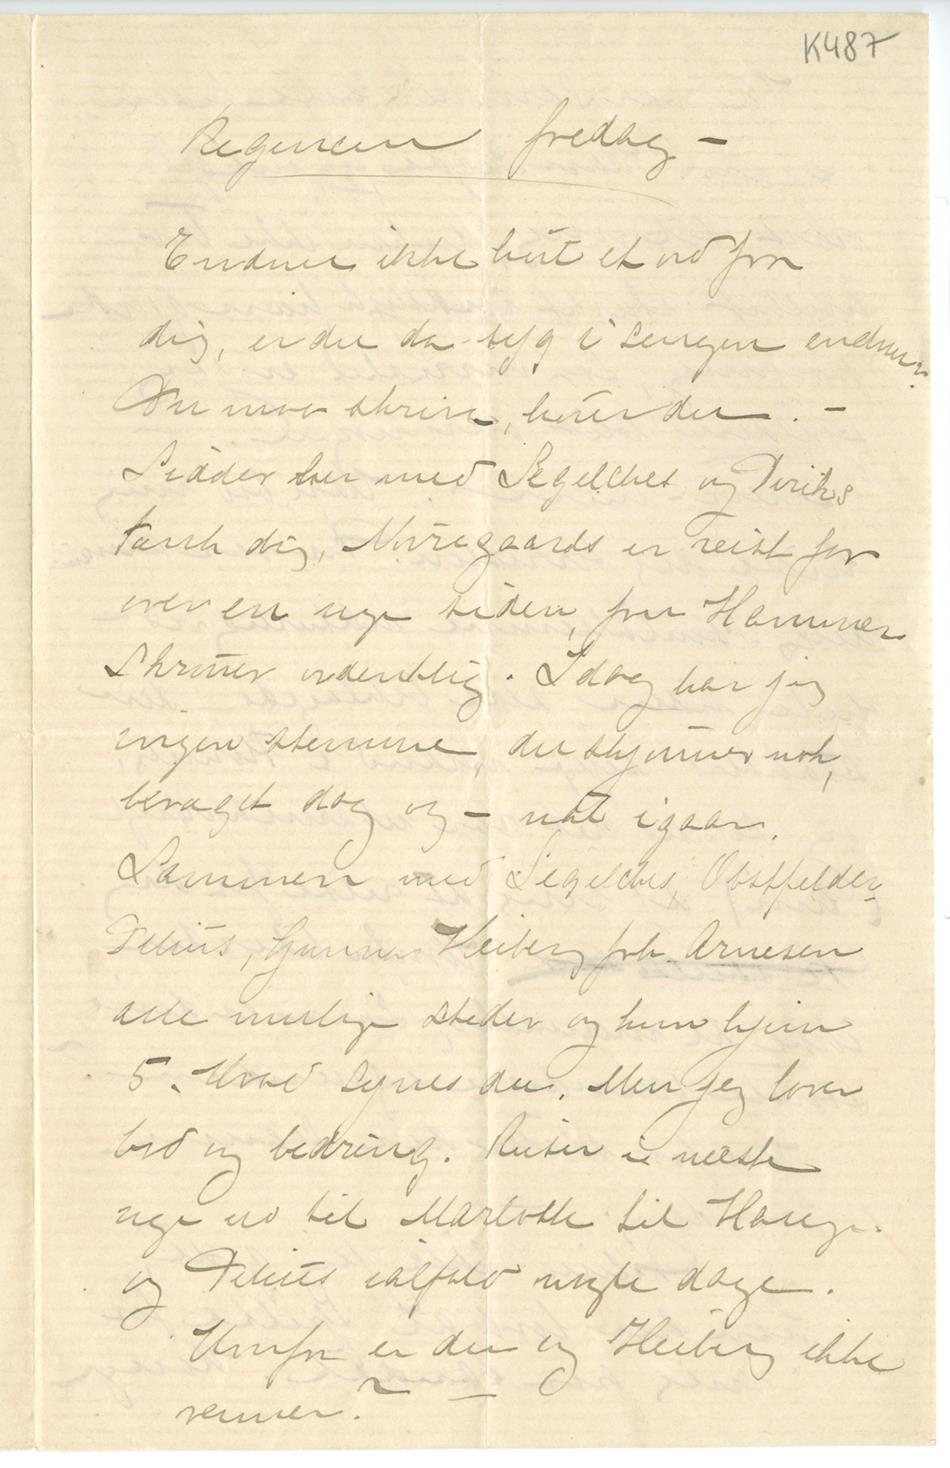 K487
Regencen fredag –
Endnu ikke hört et ord fra
dig, er du da syg i sengen endnu?
Du maa skrive, hörer du. –
Sidder her med Segelckes og Diriks
tænk dig, Norregaards er reist for
over en uge siden, fru Hammer
skriver ordentlig. Idag har jeg
ingen stemme, du skjönner nok,
bevæget dag og – nat igaar.
Sammen med Segelckes, Obstfelder,
Delius, Gunnar Heiberg frk. Arnesen
alle mulige steder og kom hjem
5. Hvad synes du. Men jeg lover
bod og bedring. Reiser i næste
uge ud til Marlotte til Hauge
og Delius ialfald nogle dage.
Hvorfor er du og Heiberg ikke
venner?